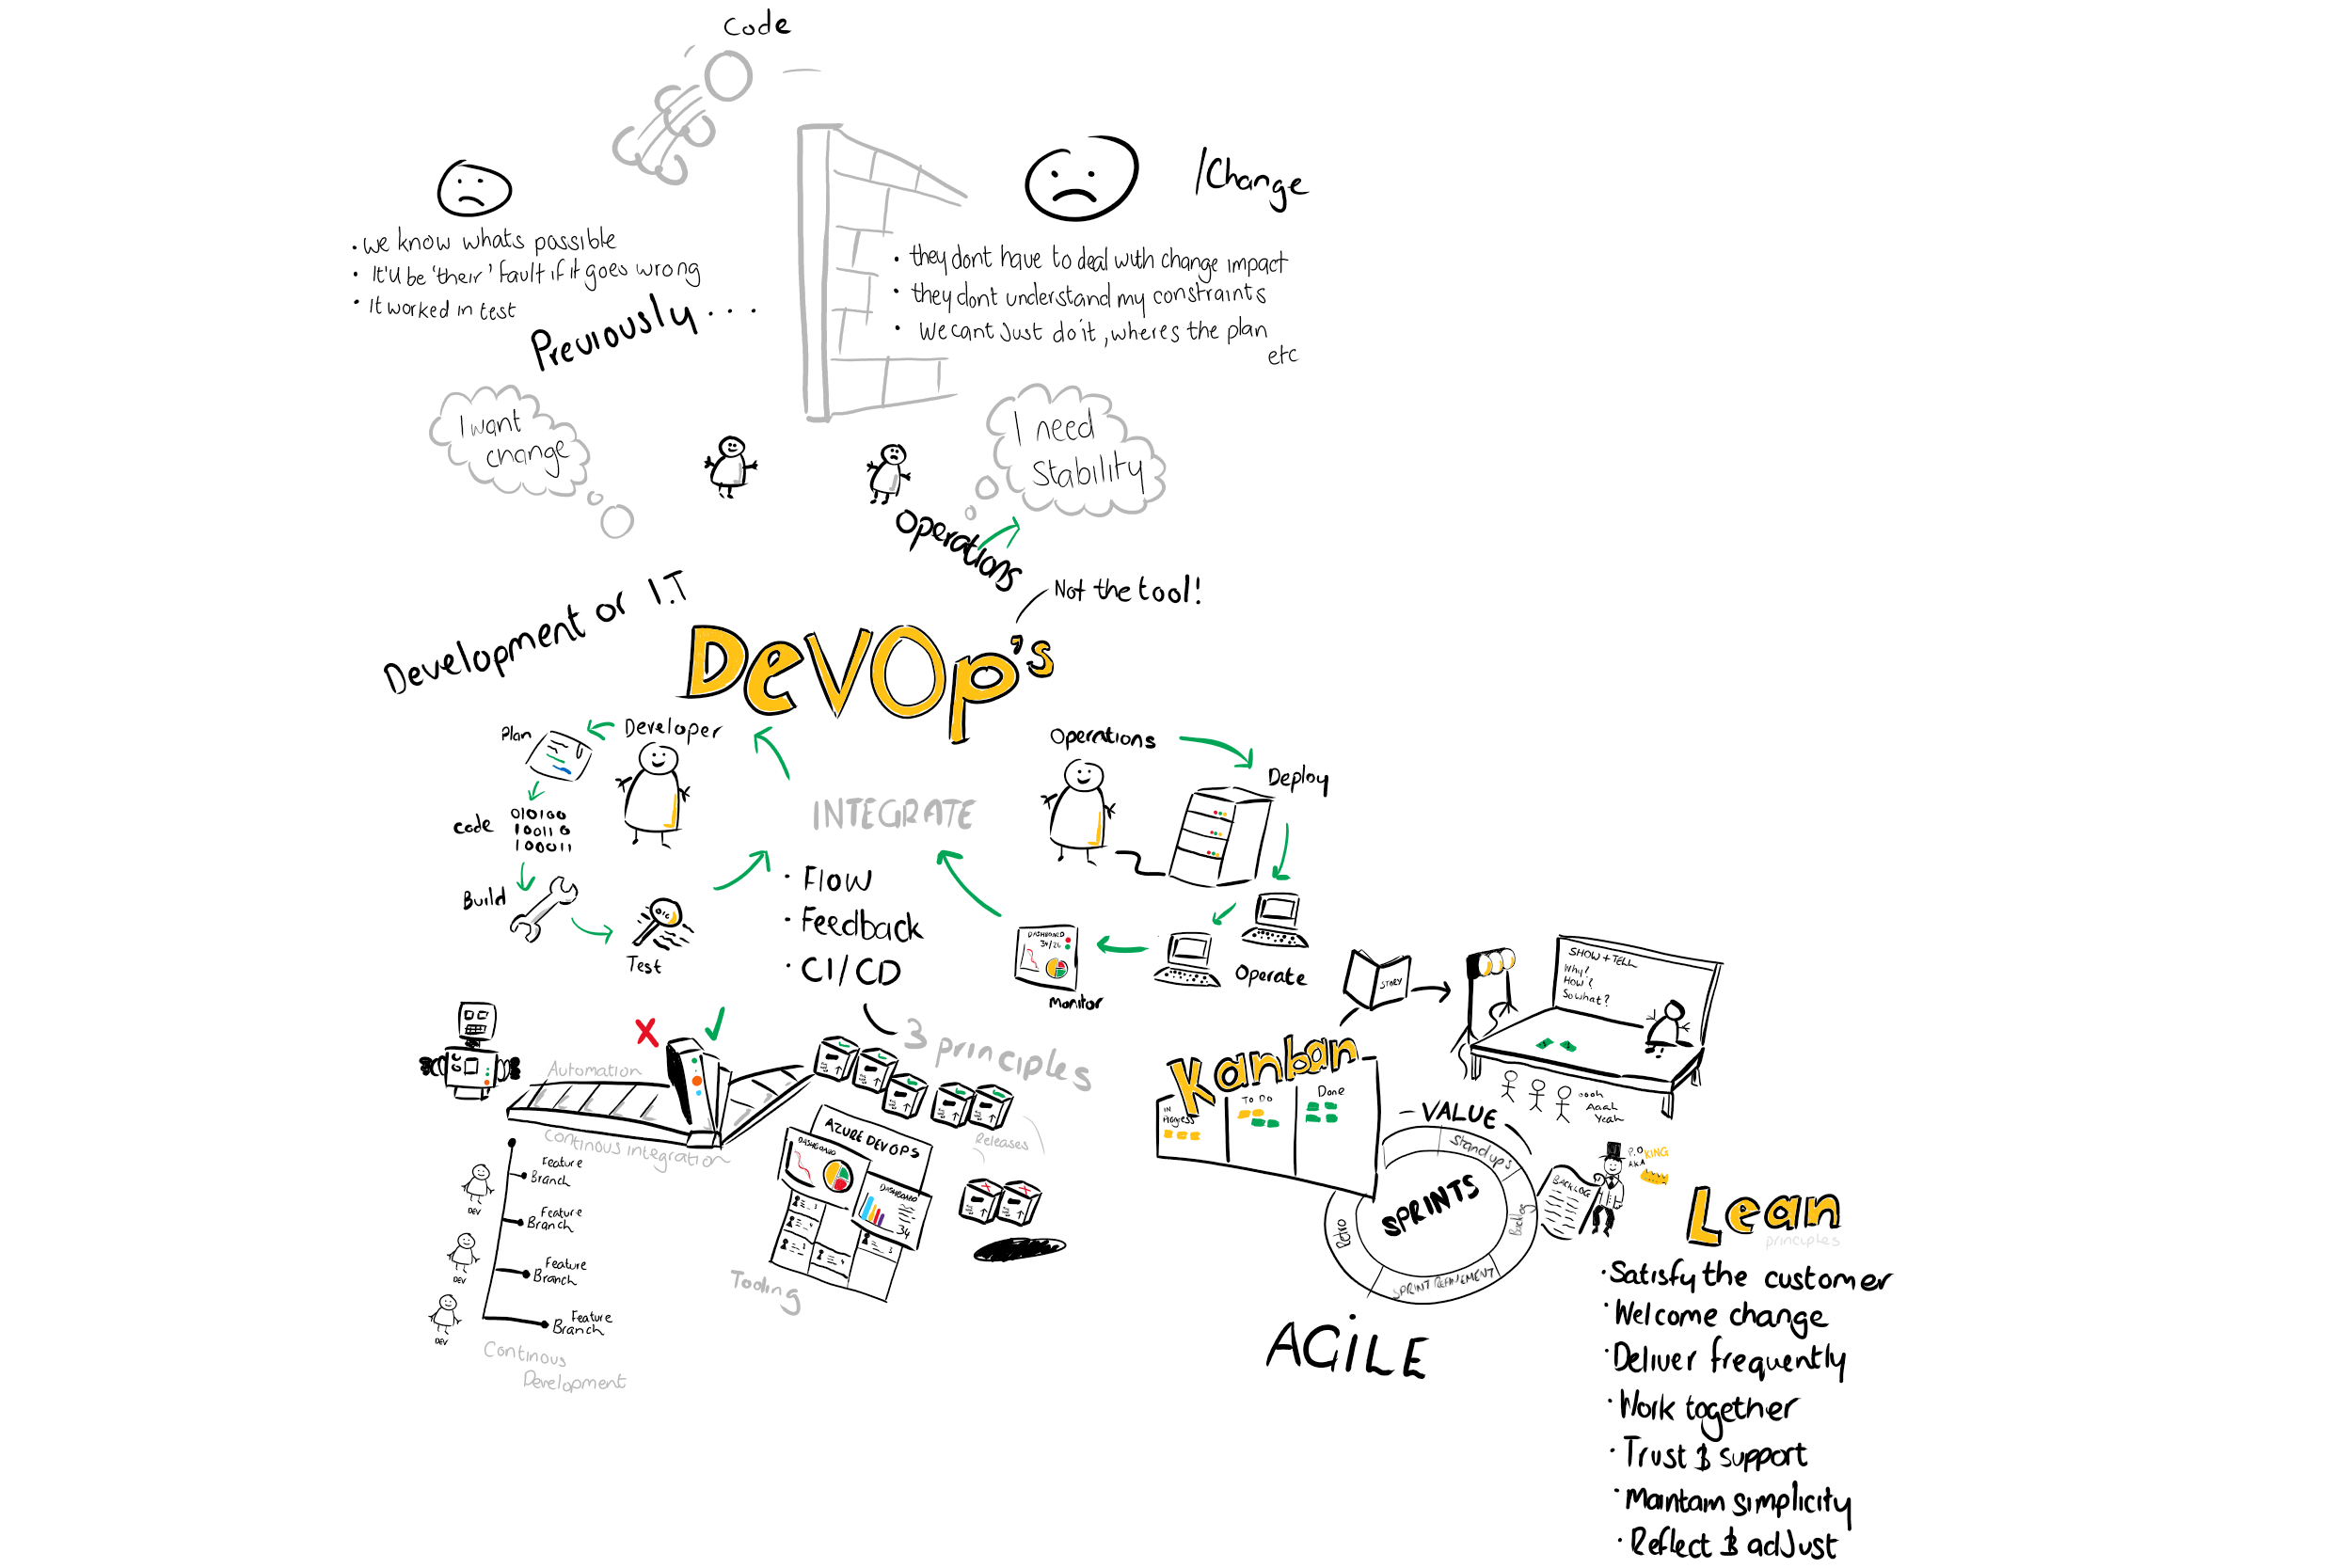 Code
/Change
• We know whats possible
• It'll be 'their' fault if it goes wrong
• It worked in test
Previously...
• they dont have to deal with change impact
• they dont understand my constraints
• We cant Just do it, wheres the plan
etc
I want
change
I need
stability
Operations
Development or I.T
Not the tool!
DevOp's
Developer
Plan
code
010100
100110
100011
Build
Test
INTEGRATE
• Flow
• Feedback
• CI/CD
3 principles
Operations
Deploy
Operate
DASHBOARD
34/26
Monitor
Automation
Continous integration
Feature
Branch
Feature
Branch
Feature
Branch
Feature
Branch
DEV
DEV
DEV
Continous
Development
Releases
AZURE DEVOPS
DASHBOARD
DASHBOARD
34
Tooling
STORY
SHOW + TELL
Why?
How?
So what?
oooh
Aaah
Yeah
Kanban
IN
Progress
To Do
Done
VALUE
SPRINTS
Stand up's
Backlog
SPRINT REFINEMENT
Retro
BACKLOG
P.O
AKA
KING
AGiLE
Lean
principles
• Satisfy the customer
• Welcome change
• Deliver frequently
• Work together
• Trust & support
• Maintain simplicity
• Reflect & adJust